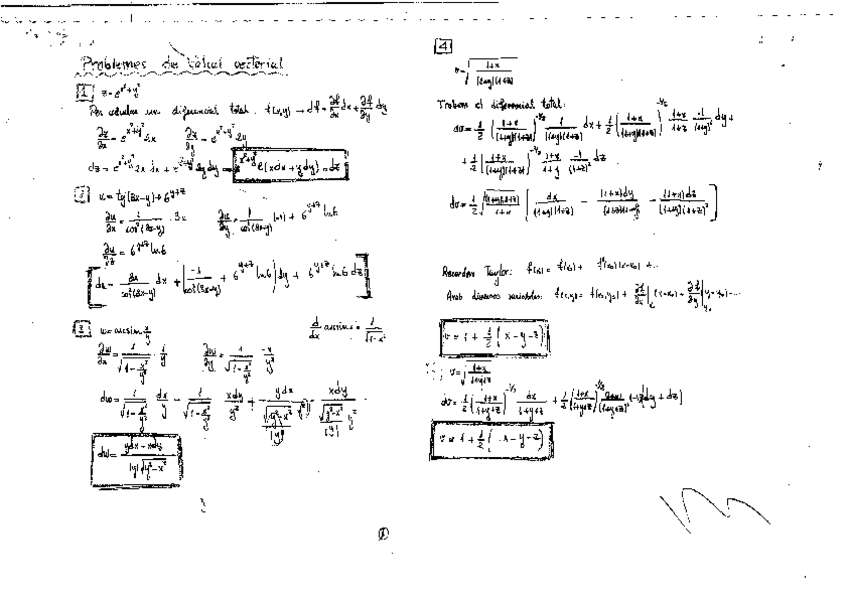 Problemes de càlcul vectorial
1 z = e^{x²+y²}
Per calcular un diferencial total: f(x,y) → df = ∂f/∂x dx + ∂f/∂y dy
∂z/∂x = e^{x²+y²} 2x    ∂z/∂y = e^{x²+y²} 2y
dz = e^{x²+y²} 2x dx + e^{x²+y²} 2y dy =
2 u = tg(3x-y) + 6^{y+z}
∂u/∂x = 1/cos²(3x-y) · 3    ∂u/∂y = 1/cos²(3x-y) (-1) + 6^{y+z} ln6
∂u/∂z = 6^{y+z} ln6
3 w = arcsin x/y    d/dx arcsin x = 1/√(1-x²)
∂w/∂x = 1/√(1-x²/y²) · 1/y    ∂w/∂y = 1/√(1-x²/y²) · -x/y²
dw = 1/√(1-x²/y²) dx/y - 1/√(1-x²/y²) xdy/y² =
dw = (ydx - xdy)/(|y|√(y²-x²))
4
v = √((1+x)/((1+y)(1+z)))
Trobem el diferencial total:
dv = 1/2 [(1+x)/((1+y)(1+z))]^{-1/2} 1/((1+y)(1+z)) dx + 1/2 [(1+x)/((1+y)(1+z))]^{-1/2} (1+x)/(1+z) · -1/(1+y)² dy +
+ 1/2 [(1+x)/((1+y)(1+z))]^{-1/2} (1+x)/(1+y) · -1/(1+z)² dz
dv = 1/2 √((1+y)(1+z)/(1+x)) [dx/((1+y)(1+z)) - (1+x)dy/((1+z)(1+y)²) - (1+x)dz/((1+y)(1+z)²)]
Recordem Taylor: f(x) = f(x₀) + f'(x₀)(x-x₀) + ...
Amb diverses variables: f(x,y) = f(x₀,y₀) + ∂f/∂x| (x-x₀) + ∂f/∂y| (y-y₀) ...
v = 1 + 1/2 (x-y-z)
v = √((1+x)/(1+y+z))
dv = 1/2 [(1+x)/(1+y+z)]^{-1/2} dx/(1+y+z) + 1/2 [(1+x)/(1+y+z)]^{-1/2} (1+x)/(1+y+z)² (-1)(dy+dz)
v = 1 + 1/2 (x-y-z)
①